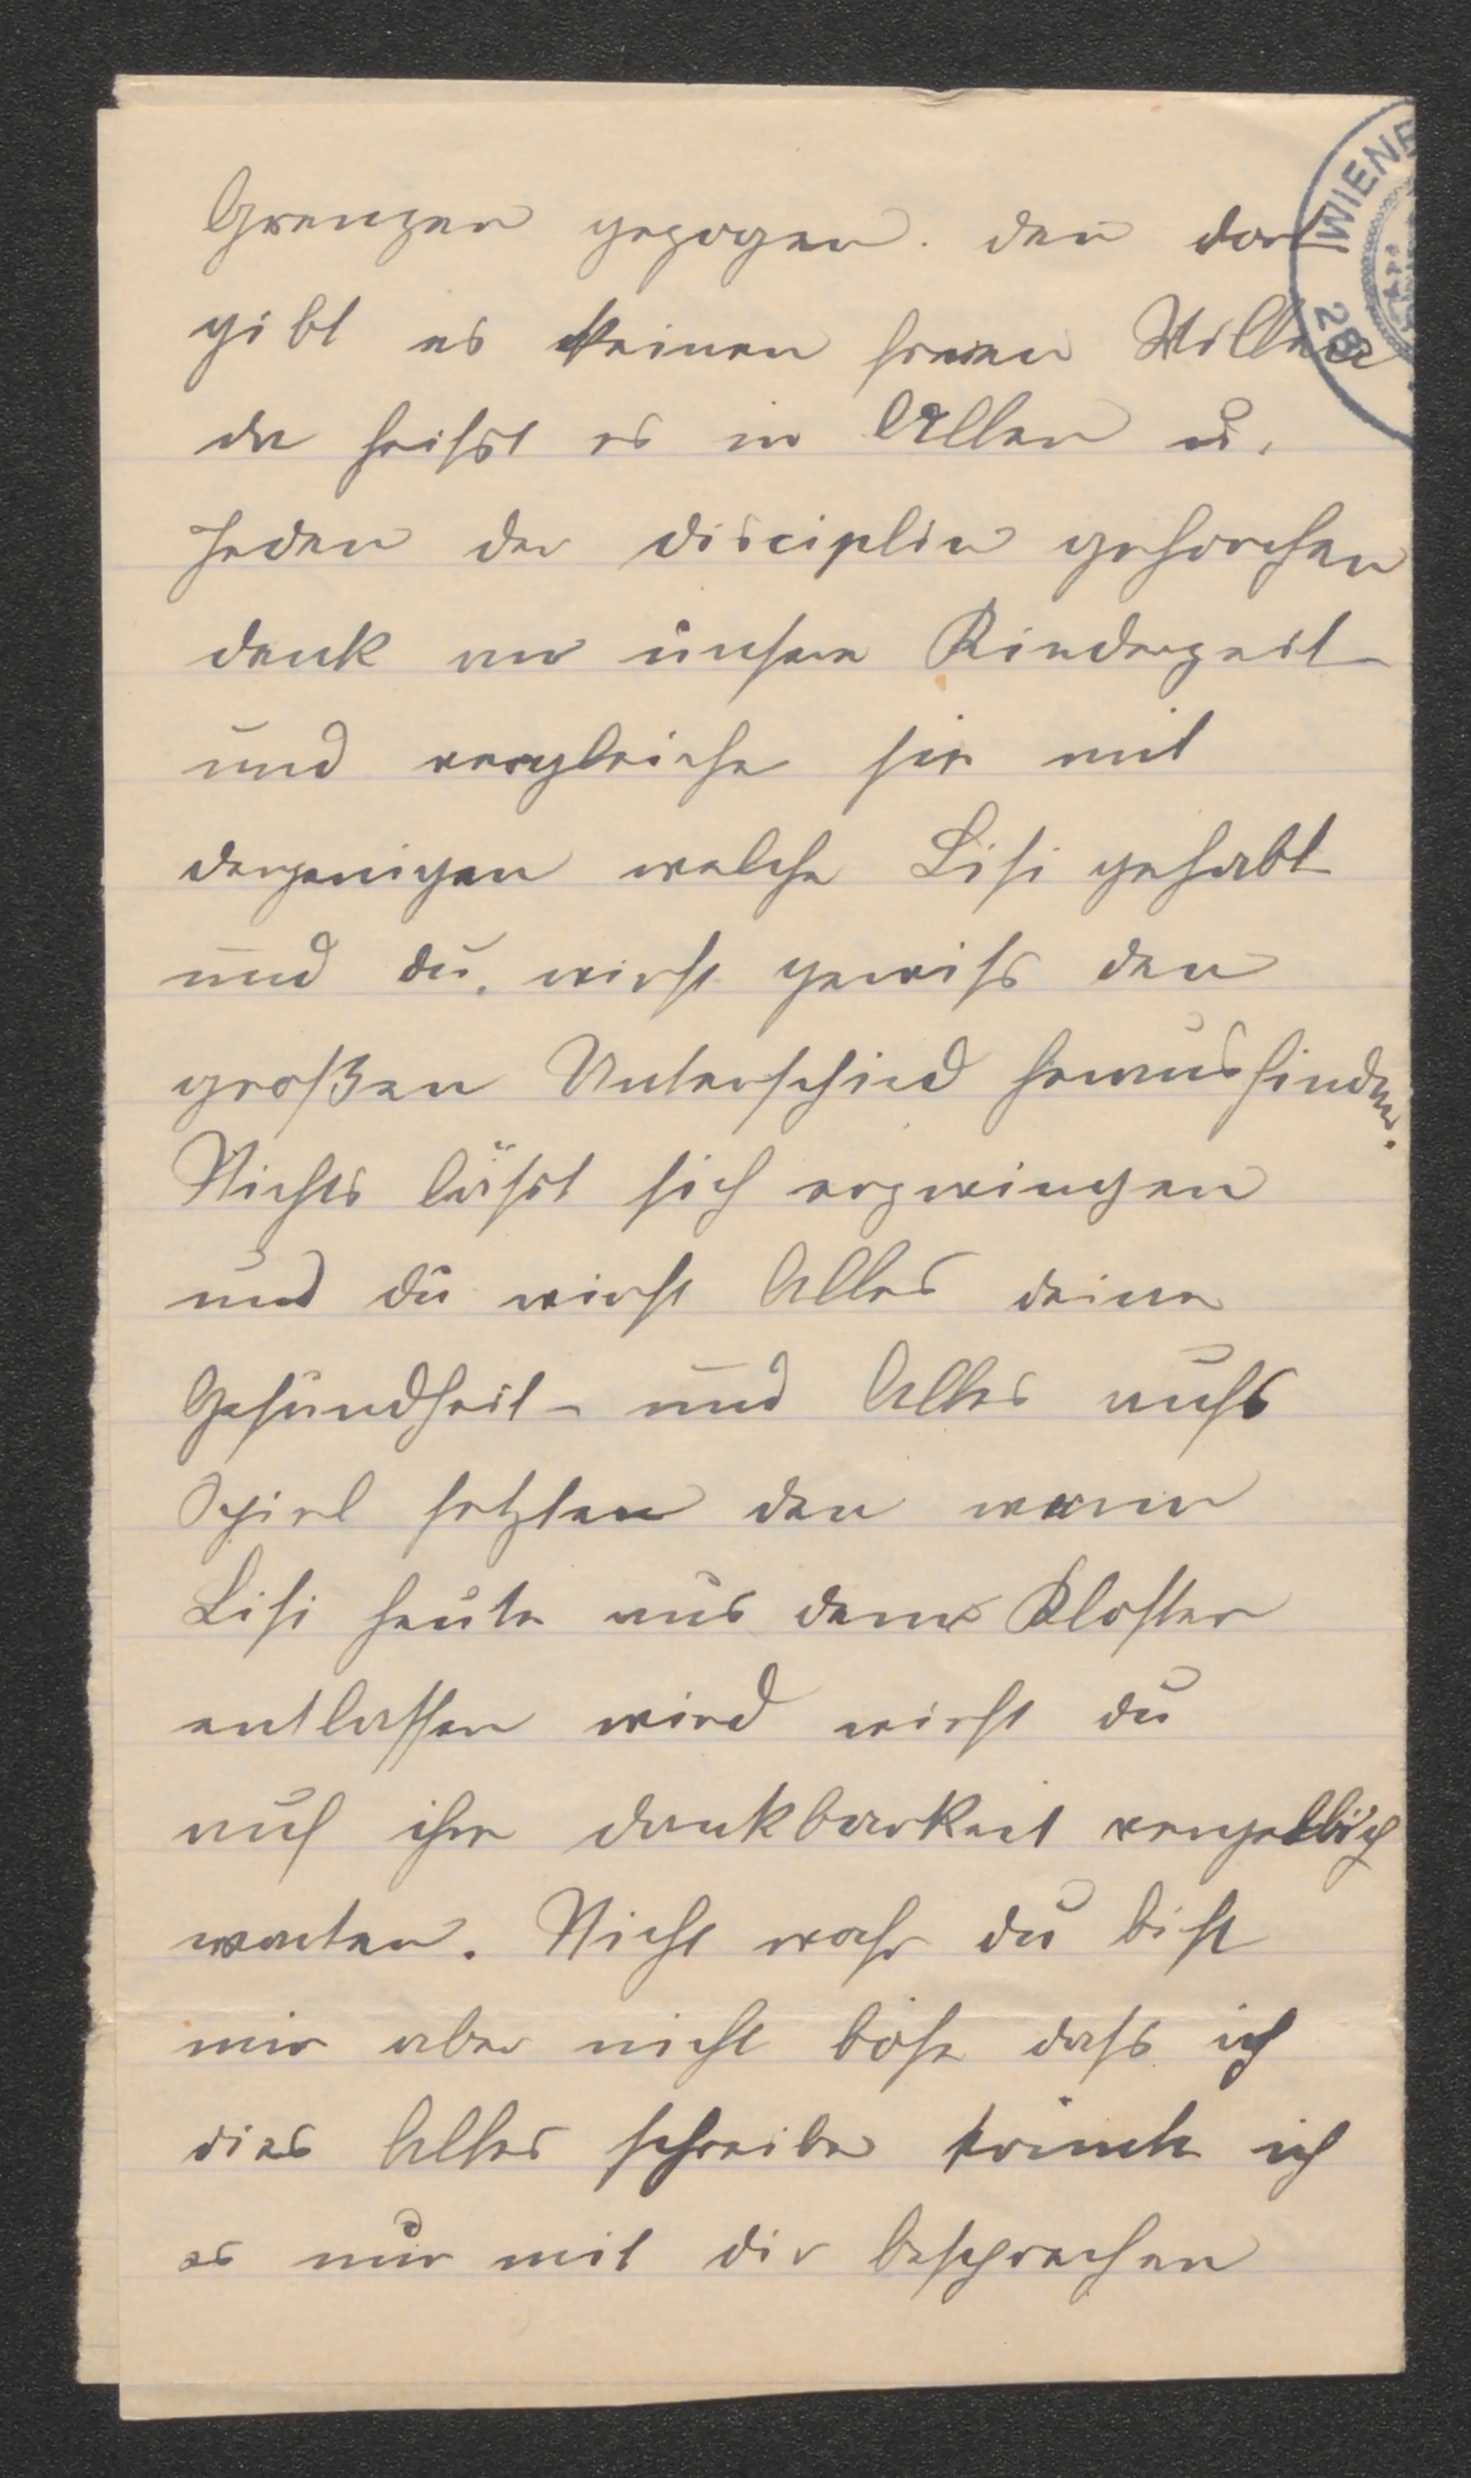 Grenzen gezogen. den dort
gibt es keinen freien Willen
da heißt es in Allen u.
Jeden der disciplin gehorchen
denk an unsere Kinderzeit
und vergleiche sie mit
derjenigen welche Lisi gehabt
und du. wirst gewiß den
großen Unterschied herausfinden.
Nichts läßt sich erzwingen
und du wirst Alles deine
Gesundheit und Alles aufs
Spiel setzten den wenn
Lisi heute aus dem Kloster
entlassen wird wirst du
auf ihre dankbarkeit vergeblich
warten. Nicht wahr du bist
mir aber nicht böse daß ich
dies Alles schreibe könnte ich
es nur mit dir besprechen
WIENE
28